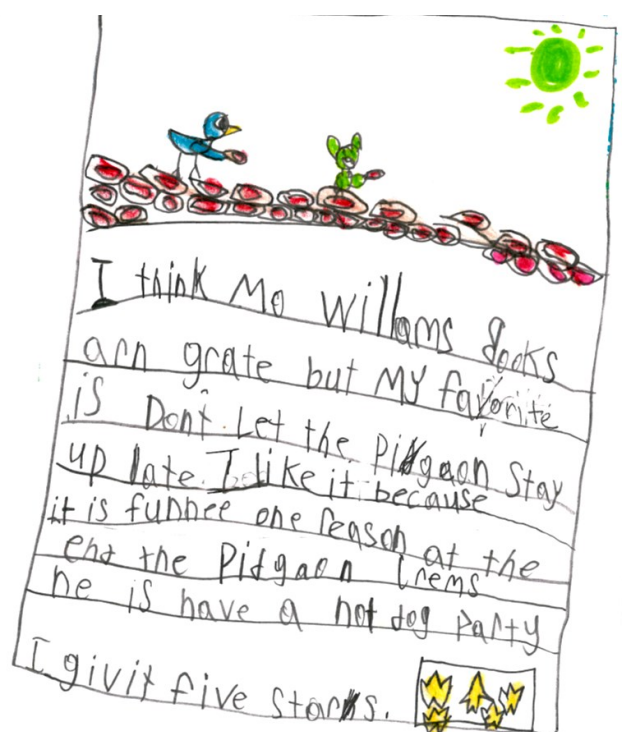 I think Mo Willams dooks
arn grate but MY favorite
is Don't Let the Pidgaon Stay
up late I like it because
it is funnee one reason at the
end the Pidgaon Drems
he is have a hot dog party
I givit five stars.